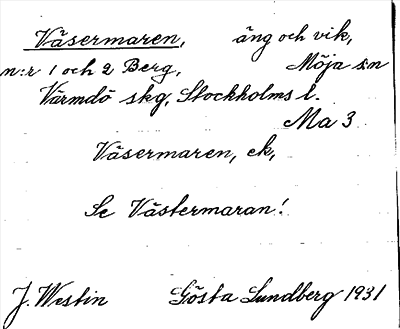 Väsermaren, äng och vik,
n:r 1 och 2 Berg, Möja s:n
Värmdö skg, Stockholms l.
Ma 3
Väsermaren, ek,
Se Västermaran!
J. Westin Gösta Lundberg 1931